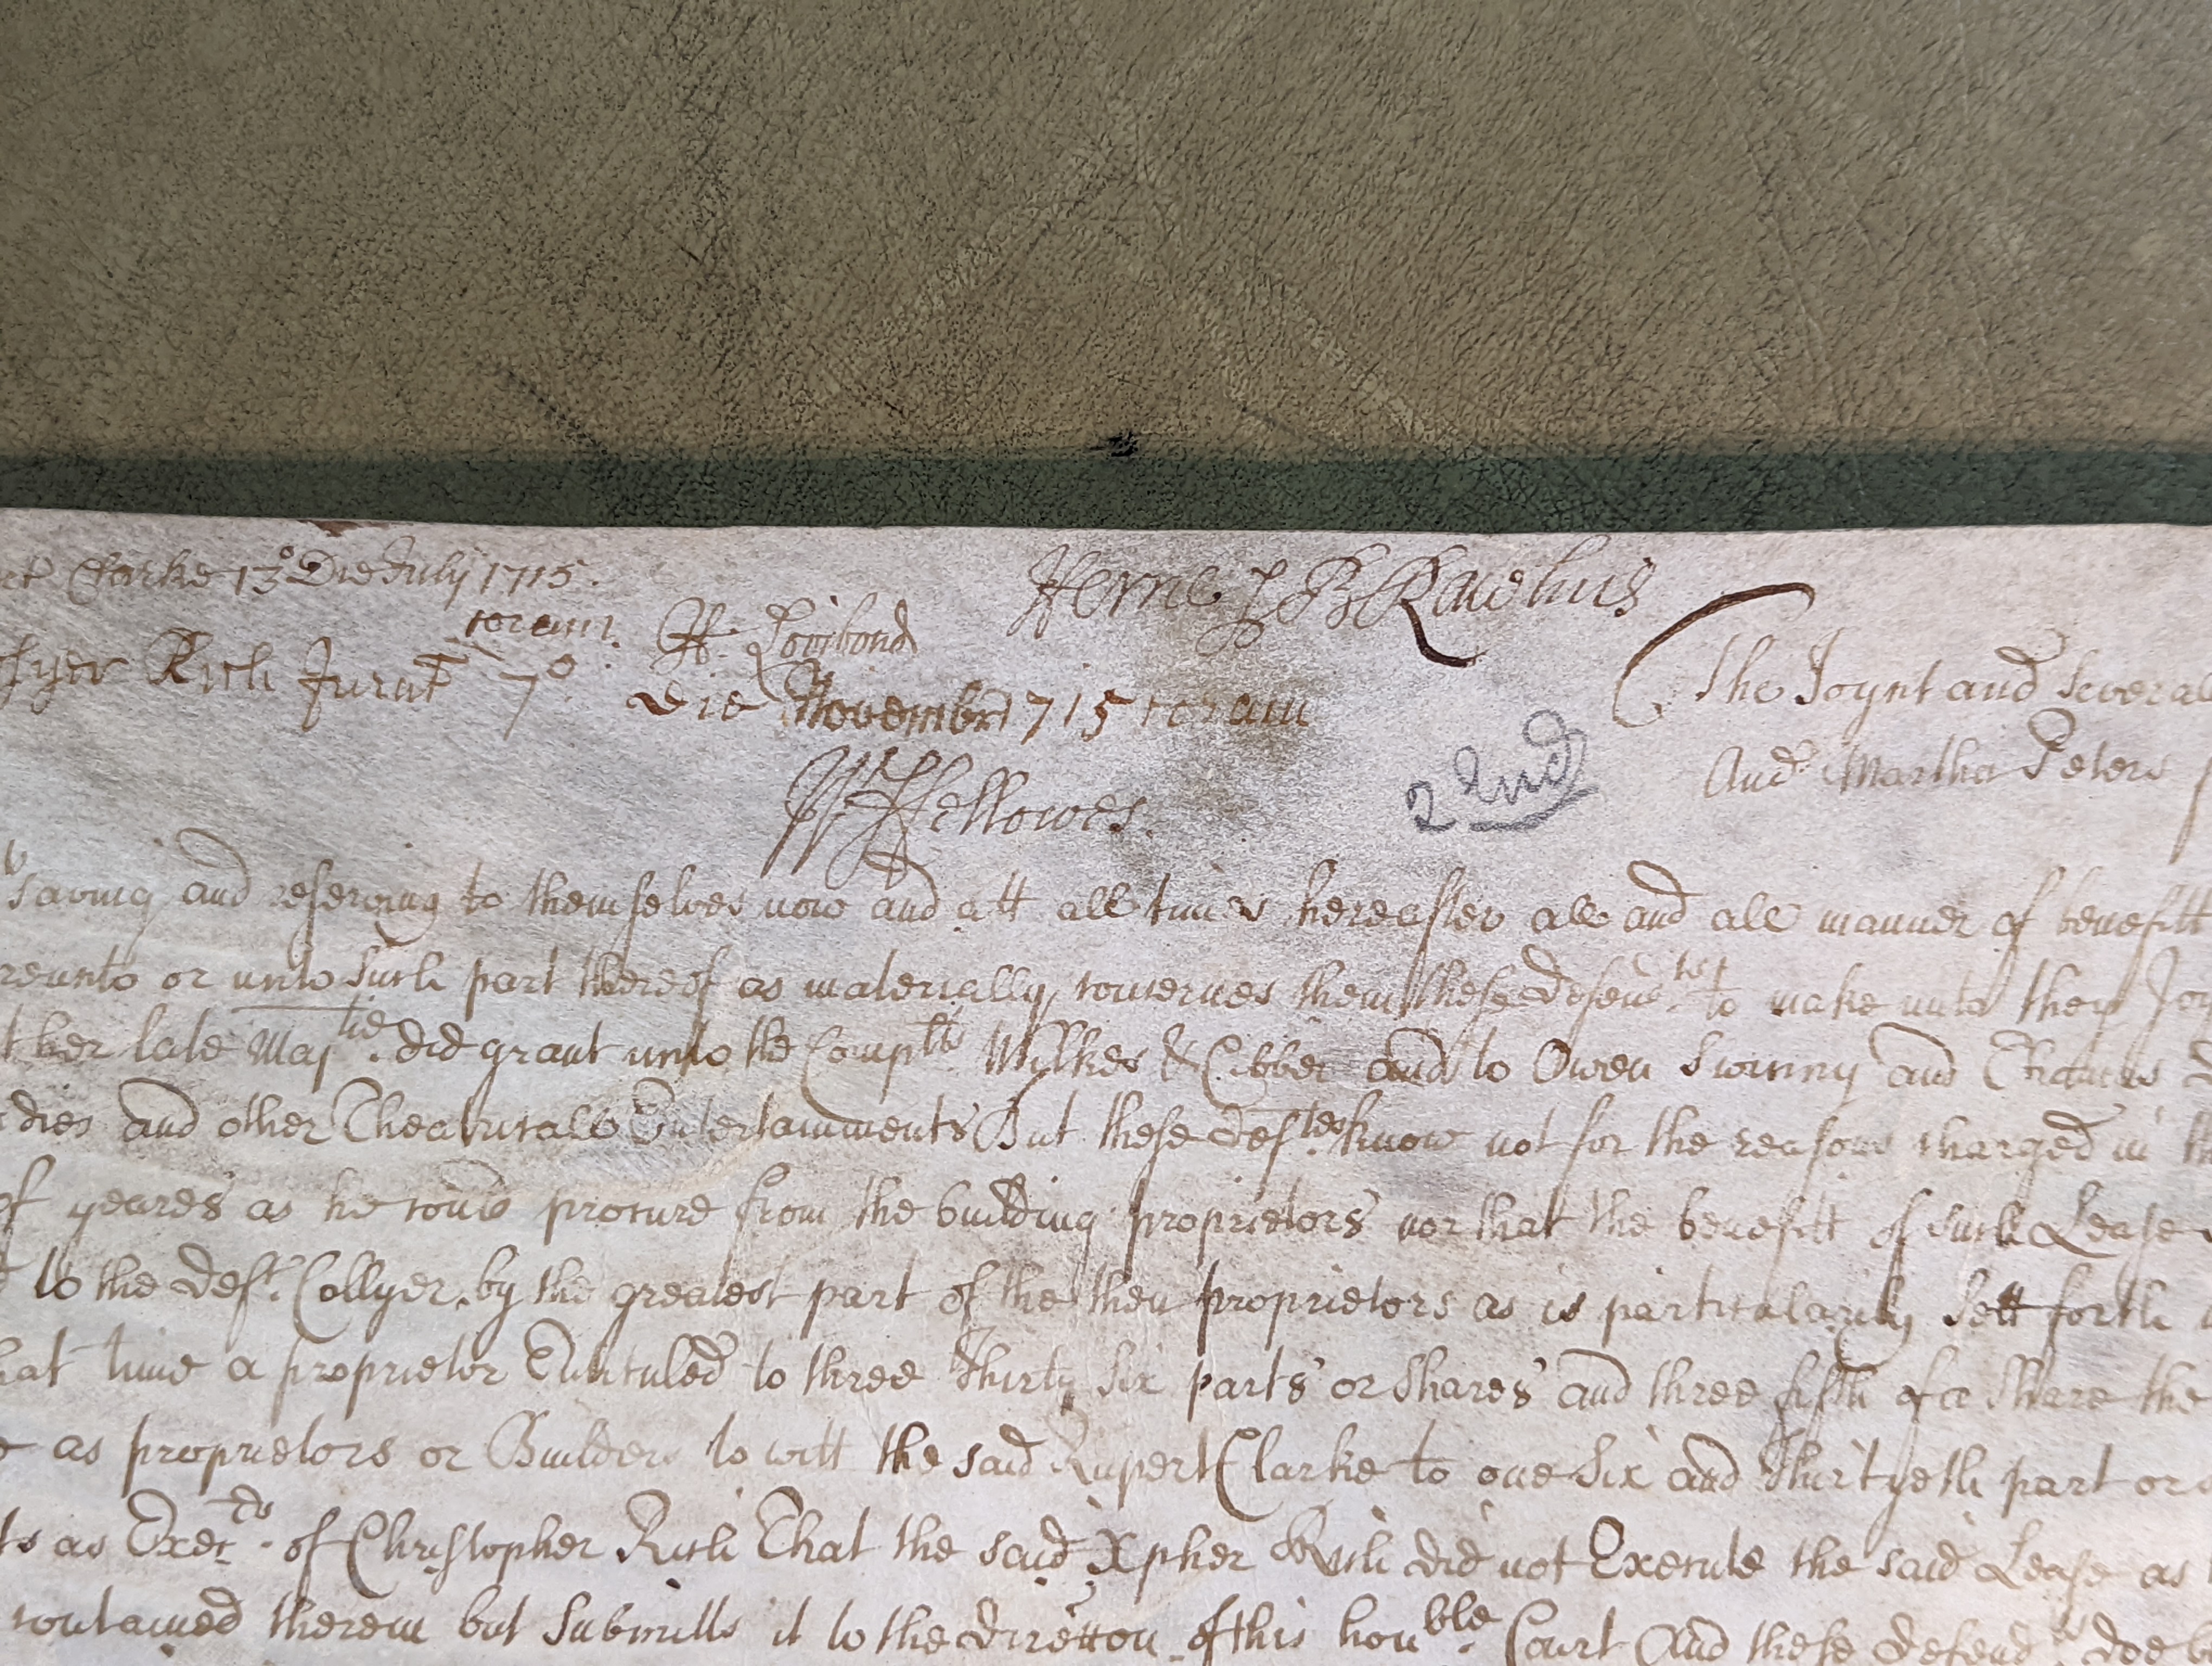 Clarke 13o Die July 1715.
coram. H: Lovibond
Rich Jurat 7o die Novembr 1715 coram
W Fellowes.
Horne p
2 Ind
The Joynt and Several
And Martha Peters
saving and reserving to themselves now and att all times hereafter all and all manner of benefitt
reunto or unto such part thereof as materially concernes them these Defendts to make unto they
her late Majtie. did grant unto the Complts Wilkes & Cibber and to Owen Swinny and Thomas
dies and other Theatricall Entertainments But these deftes know not for the reasons charged in
of yeares as he could procure from the building proprietors nor that the benefitt of such Lease
to the deft. Collyer by the greatest part of the then proprietors as is particularily Sett forth
hat time a proprietor Entituled to three Thirty Six parts or Shares and three fifth of a Share the
as proprietors or Builders to witt the said Rupert Clarke to one Six and Thirtyeth part or
ts as Execrs. of Christopher Rich That the said Xpher Rich did not Execute the said Lease as
contained therein but Submitts it to the direccon of this honble. Court And these defendts doe